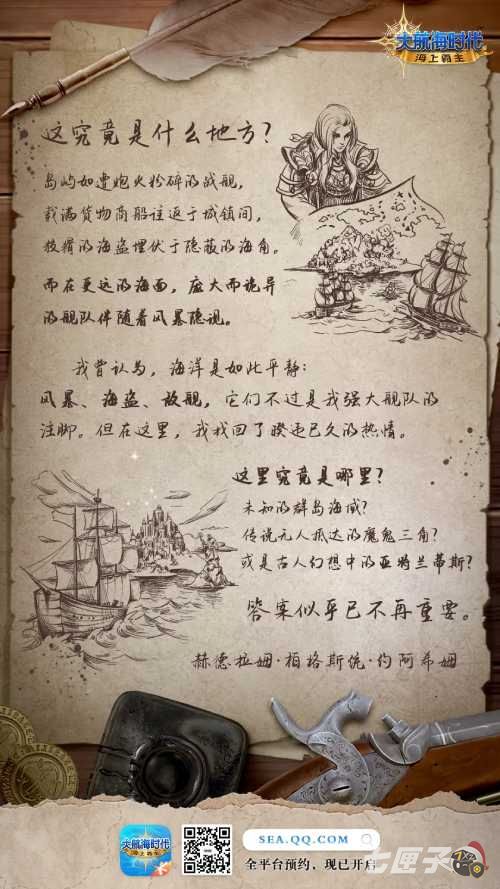 大航海时代
海上霸主
这究竟是什么地方?
岛屿如遭炮火粉碎的战舰,
载满货物商船往返于城镇间,
狡猾的海盗埋伏于隐蔽的海角。
而在更远的海面,庞大而诡异
的舰队伴随着风暴隐现。
我曾认为,海洋是如此平静:
风暴、海盗、敌舰,它们不过是我强大舰队的
注脚。但在这里,我找回了暌违已久的热情。
这里究竟是哪里?
未知的群岛海域?
传说无人抵达的魔鬼三角?
或是古人幻想中的亚特兰蒂斯?
答案似乎已不再重要。
赫德拉姆·柏格斯统·约阿希姆
大航海时代
海上霸主
SEA.QQ.COM
全平台预约,现已开启
七匣子